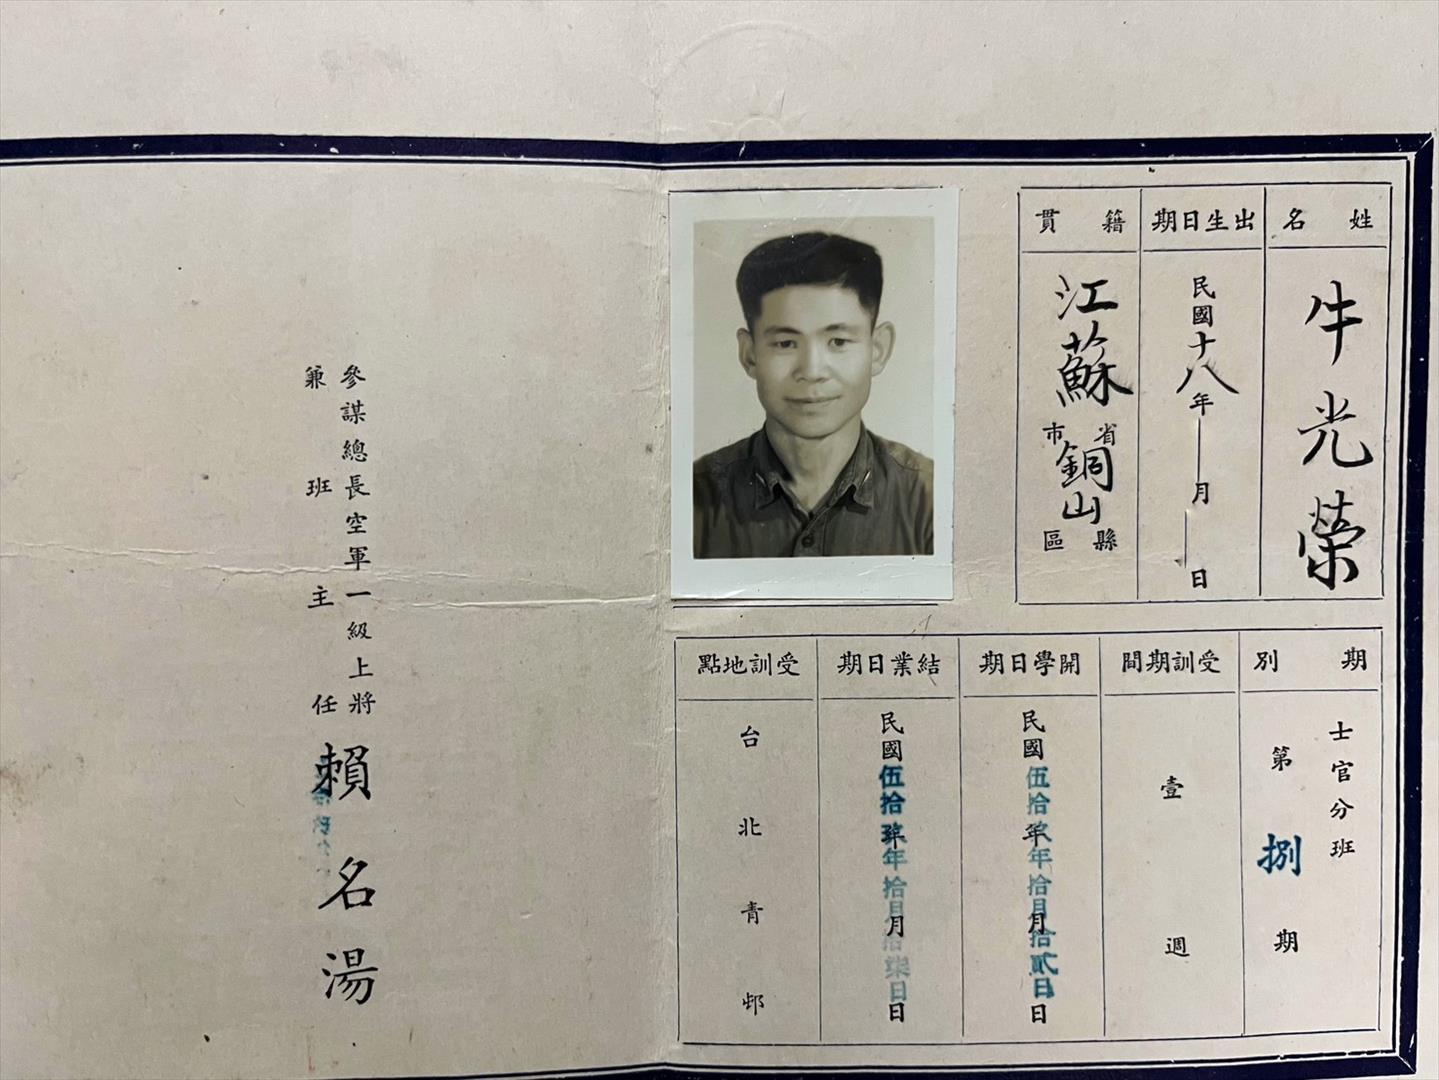 姓名
牛光榮
出生日期
民國十八年 月 日
籍貫
江蘇省市
銅山縣區
期別
士官分班
第捌期
受訓期間
壹週
開學日期
民國伍拾玖年拾月拾貳日
結業日期
民國伍拾玖年拾月拾柒日
受訓地點
台北青邨
參謀總長空軍一級上將
兼班主任
賴名湯